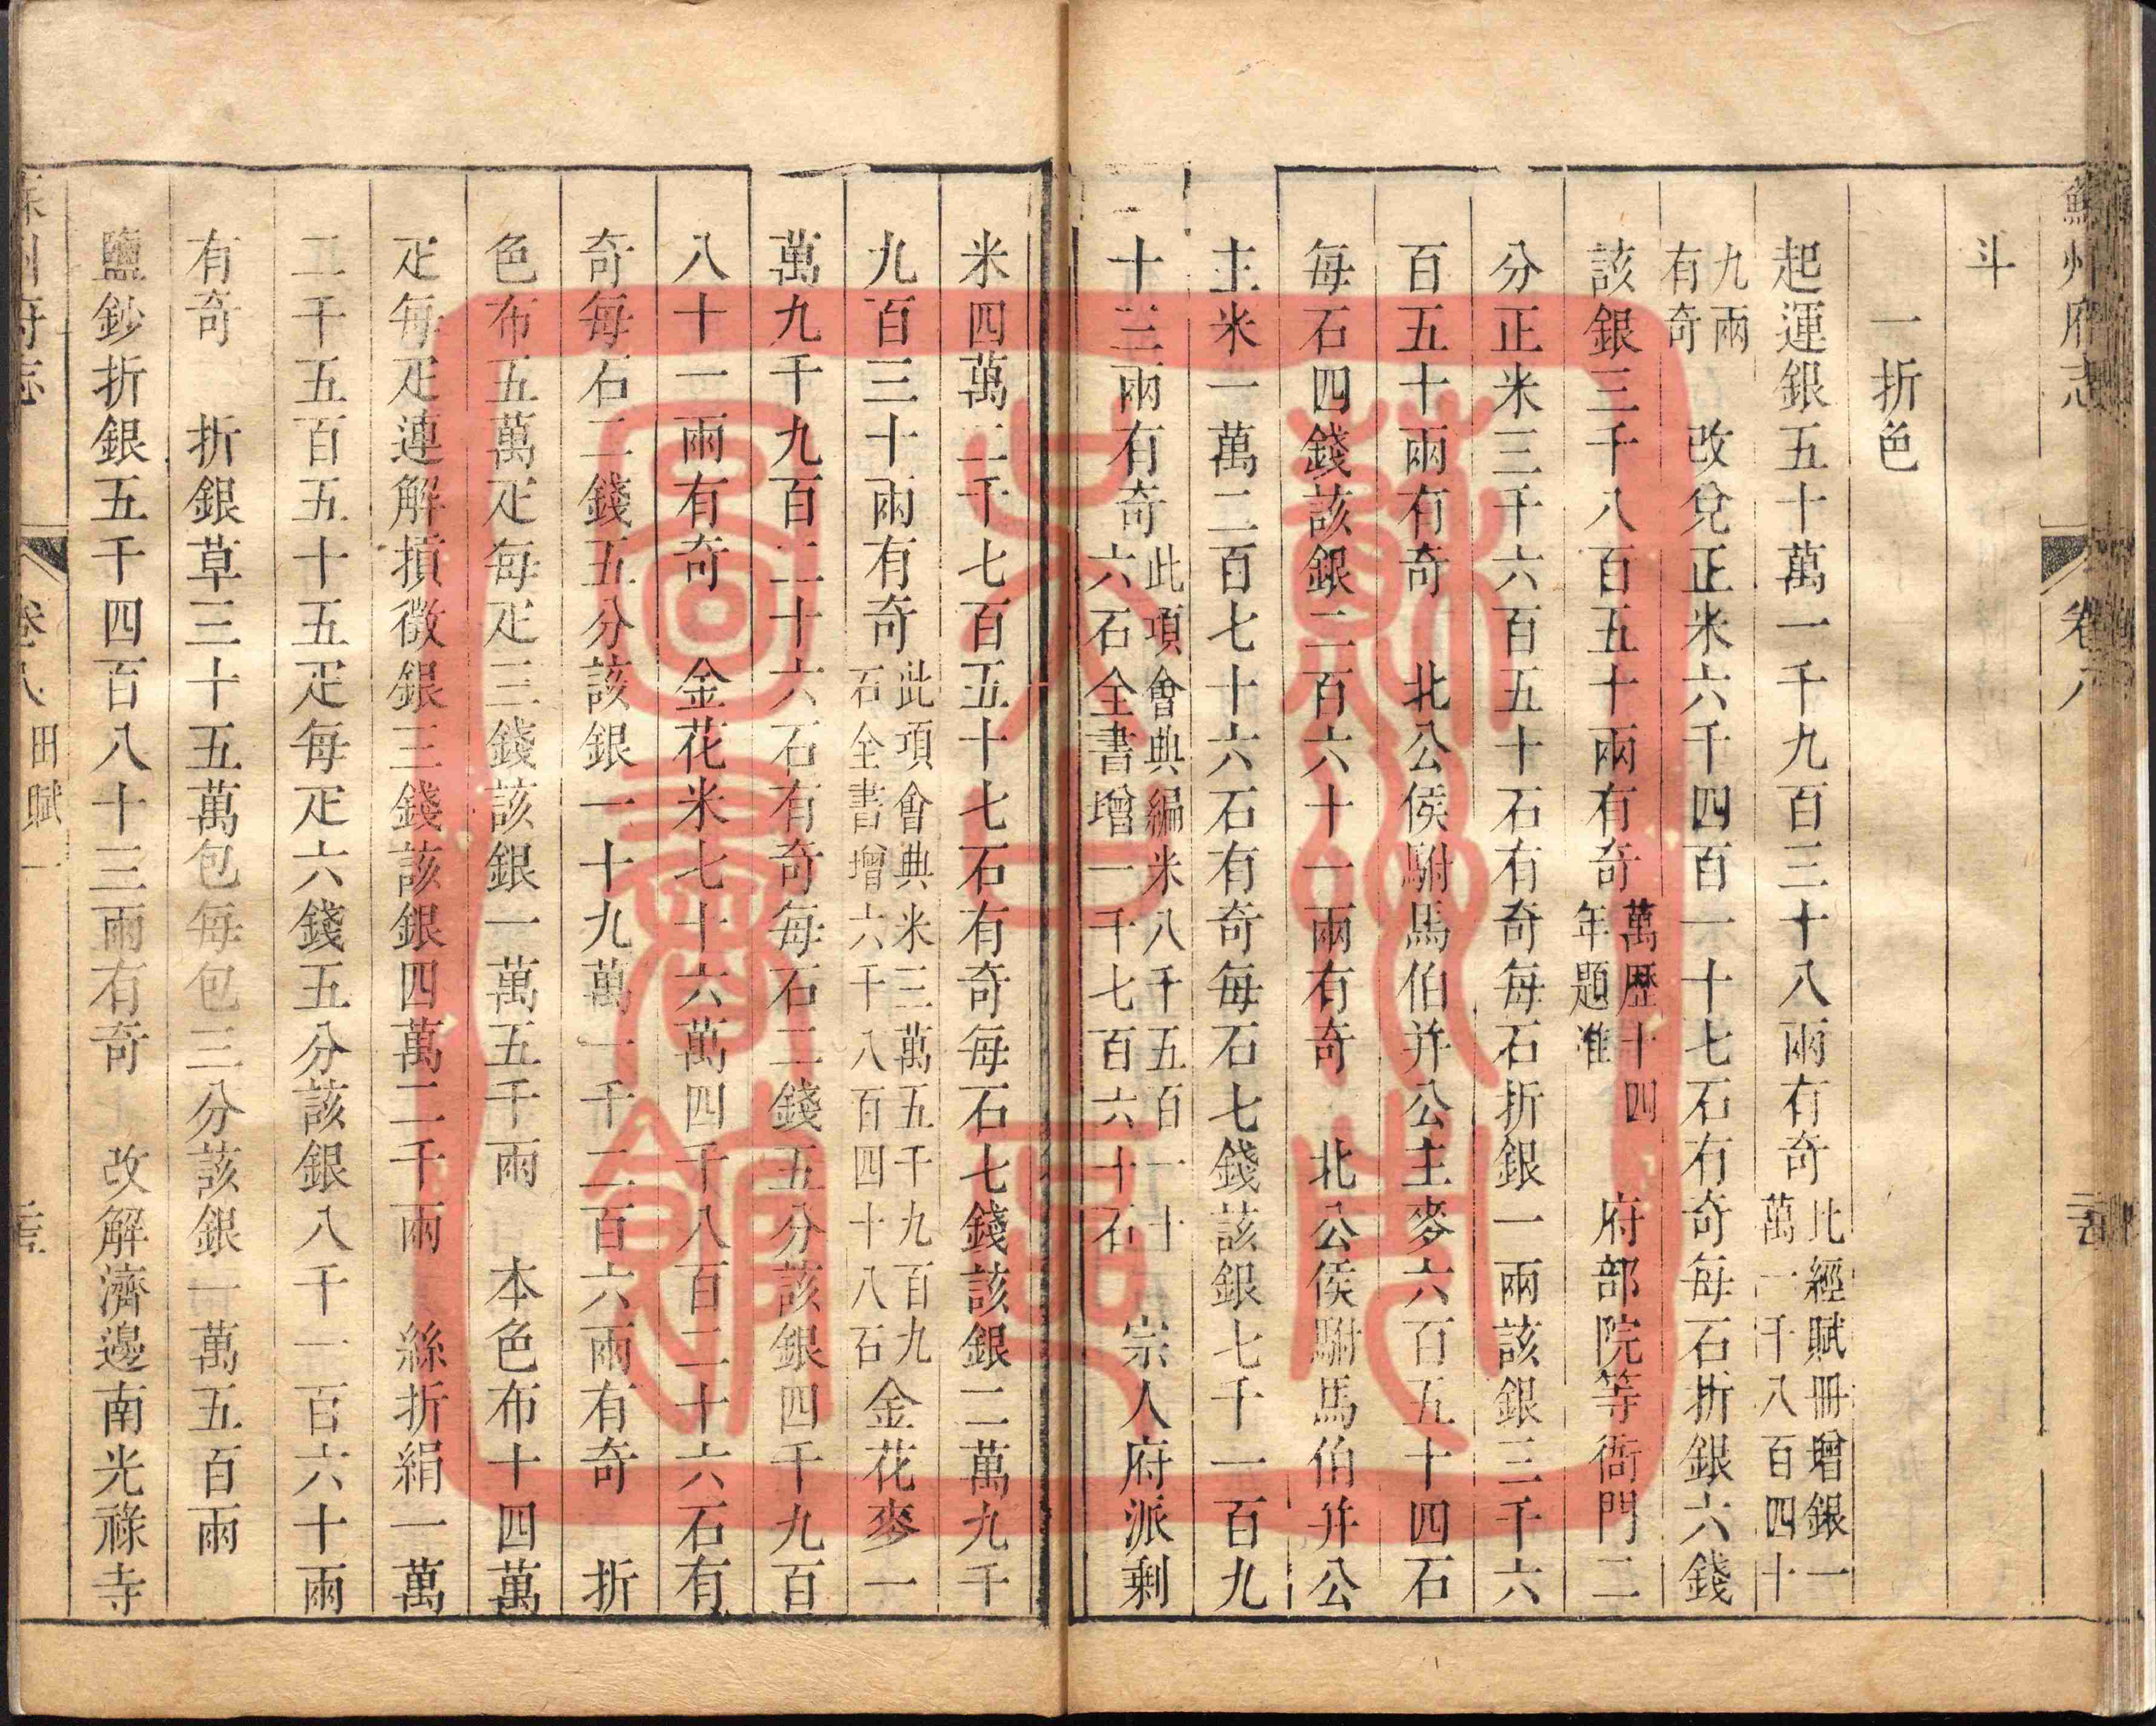 蘇州府志
卷八
斗
一折色
起運銀五十萬一千九百三十八兩有奇此經賦冊增銀一萬一千八百四十
九兩有奇 改兌正米六千四百一十七石有奇每石折銀六錢
該銀三千八百五十兩有奇萬歷十四年題准 府部院等衙門二
分正米三千六百五十石有奇每石折銀一兩該銀三千六
百五十兩有奇 北公侯駙馬伯并公主麥六百五十四石
每石四錢該銀二百六十一兩有奇 北公侯駙馬伯并公
主米一萬二百七十六石有奇每石七錢該銀七千一百九
十三兩有奇此項會典編米八千五百一十六石全書增一千七百六十石 宗人府派剩
米四萬二千七百五十七石有奇每石七錢該銀二萬九千
九百三十兩有奇此項會典米三萬五千九百九石全書增六千八百四十八石 金花麥一
萬九千九百二十六石有奇每石二錢五分該銀四千九百
八十一兩有奇 金花米七十六萬四千八百二十六石有
奇每石二錢五分該銀一十九萬一千二百六兩有奇 折
色布五萬疋每疋三錢該銀一萬五千兩 本色布十四萬
疋每疋連解損徵銀三錢該銀四萬二千兩 絲折絹一萬
二千五百五十五疋每疋六錢五分該銀八千一百六十兩
有奇 折銀草三十五萬包每包三分該銀一萬五百兩
鹽鈔折銀五千四百八十三兩有奇 改解濟邊南光祿寺
蘇州府志
卷八 田賦一